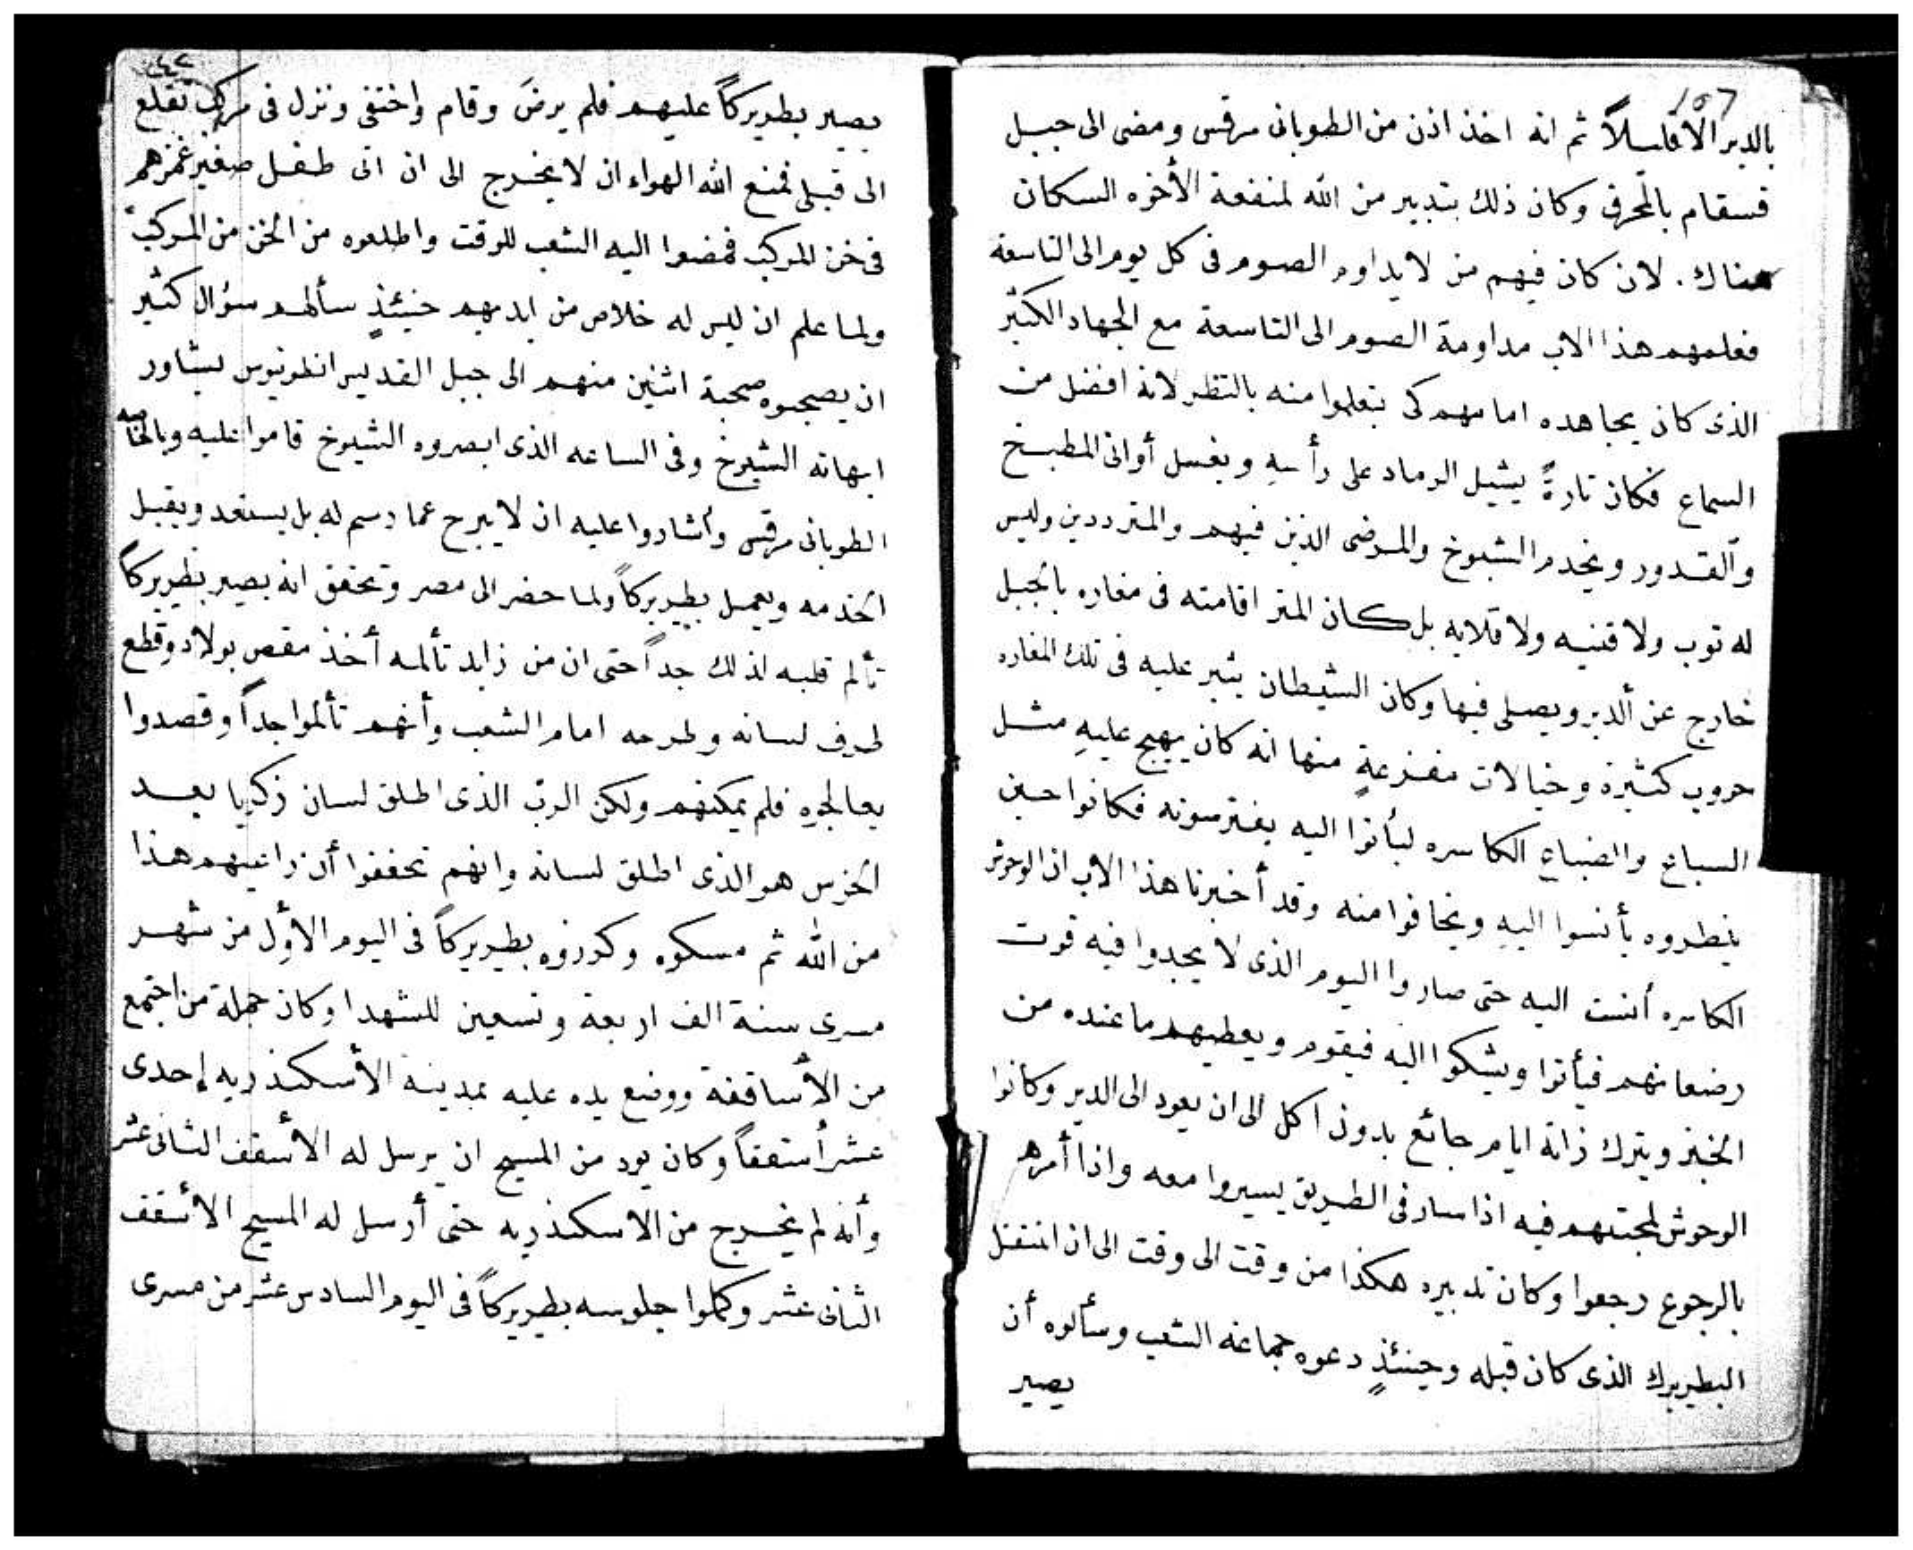 ١٥٦
بالدير الا قليلاً ثم انه اخذ اذن من الطوبانى مرقس ومضى الى جبل
قسقام بالمحرق وكان ذلك بتدبير من الله لمنفعة الأخوه السكان
هناك . لان كان فيهم من لا يداوم الصوم فى كل يوم الى التاسعة
فعلمهم هذا الاب مداومة الصوم الى التاسعة مع الجهاد الكثير
الذى كان يجاهده امامهم كى يتعلموا منه بالنظر لانه افضل من
السماع فكان تارةً يشيل الرماد على رأسهِ ويغسل أوانى المطبخ
والقدور ويخدم الشيوخ والمرضى الذين فيهم والمترددين وليس
له توب ولا قنيه ولا قلايه بل كان المتر اقامته فى مغاره بالجبل
خارج عن الدير ويصلى فيها وكان الشيطان يثير عليه فى تلك المغاره
حروب كثيرة وخيالات مفزعةٍ منها انه كان يهيج عليهِ مثل
السباع والضباع الكاسره ليأتوا اليه يفترسونه فكانوا حين
ينظروه يأنسوا اليهِ ويخافوا منه وقد أخبرنا هذا الاب ان الوحوش
الكاسره أنست اليه حتى صاروا اليوم الذى لا يجدوا فيه قوت
رضعانهم فيأتوا ويشكوا اليه فيقوم ويعطيهم ما عنده من
الخبز ويترك ذاته ايام جائع بدون اكل الى ان يعود الى الدير وكانوا
الوحوش لمحبتهم فيه اذا سار فى الطريق يسيروا معه واذا أمرهم
بالرجوع رجعوا وكان تدبيره هكذا من وقت الى وقت الى ان انتقل
البطريرك الذى كان قبله وحينئذٍ دعوه جماعة الشعب وسألوه أن
يصير
يصير بطريركاً عليهم فلم يرضَ وقام واختفى ونزل فى مركب تقلع
الى قبلى فمنع الله الهواء ان لا يخرج الى ان اتى طفل صغير غمزهم
فى خن المركب فمضوا اليه الشعب للوقت واطلعوه من الخن من المركب
ولما علم ان ليس له خلاص من ايديهم حينئذٍ سألهم سؤال كثير
ان يصحبوه صحبة اثنين منهم الى جبل القديس انطونيوس ليشاور
ابهاته الشيوخ وفى الساعه الذى ابصروه الشيوخ قاموا عليه وبالخاصه
الطوبانى مرقس وأشاروا عليه ان لا يبرح عما رسم له بل يستعد ويقبل
الخدمه ويعمل بطريركاً ولما حضر الى مصر وتحقق انه يصير بطريركاً
تألم قلبه لذلك جداً حتى ان من زايد تألمه أخذ مقص بولاد وقطع
طرف لسانه وطرحه امام الشعب وأنهم تألموا جداً وقصدوا
يعالجوه فلم يمكنهم ولكن الربّ الذى اطلق لسان زكريا بعد
الخرس هو الذى اطلق لسانه وانهم تحققوا أن راعيهم هذا
من الله ثم مسكوه وكرزوه بطريركاً فى اليوم الاوّل من شهر
مسرى سنة الف اربعة وتسعين للشهدا وكان جملة من اجتمع
من الأساقفة ووضع يده عليه بمدينة الأسكندريه إحدى
عشر أسقفاً وكان يود من المسيح ان يرسل له الأسقف الثانى عشر
وأنه لم يخرج من الاسكندريه حتى أرسل له المسيح الأسقف
الثانى عشر وكملوا جلوسه بطريركاً فى اليوم السادس عشر من مسرى